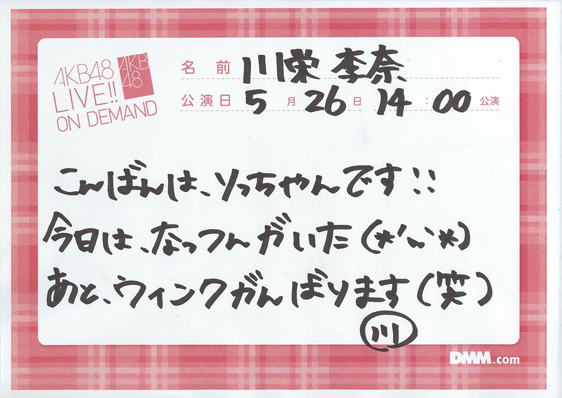 AKB48
LIVE!!
ON DEMAND
AKB
48
名前 川栄 李奈
公演日 5月26日 14:00公演
こんばんは、りっちゃんです!!
今日は、なっつんがいた(*'ω'*)
あと、ウィンクがんばります(笑)
川
DMM.com